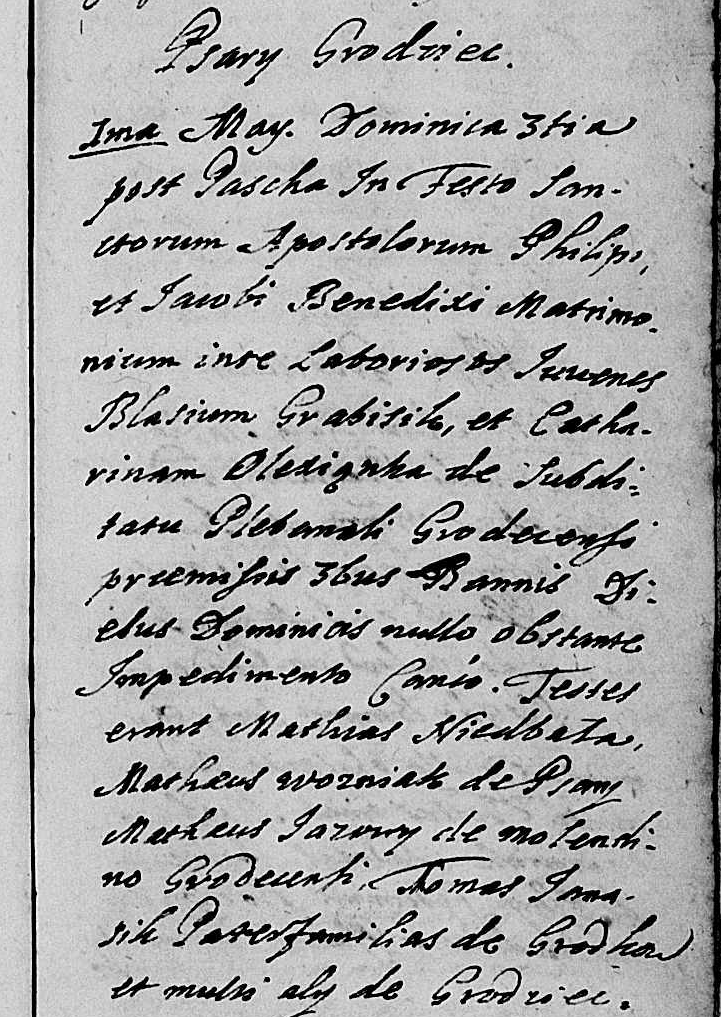 Psary Grodziec.
Ima May. Dominica 3tia
post Pascha In Festo San-
ctorum Apostolorum Philipi,
et Jacobi Benedixi Matrimo-
nium inte Laboriosos Juvenes
Blasium Grabisik, et Catha-
rinam Olexiąnka de Subdi-
tatu Plebanali Grodecensi
præmissis 3bus Bannis Di-
ebus Dominicis nullo obstante
Impedimento Canĩo. Testes
erant Mathias Niedbała,
Mathæus Wozniak de Psary
Mathæus Jazowy de molendi-
no Grodecensi, Thomas Jana-
sik Paterfamilias de Grodkow
et multi alÿ de Grodziec.